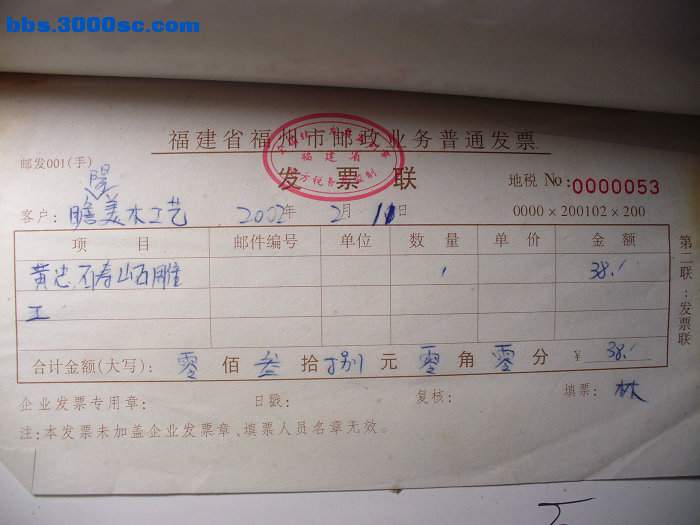 bbs.3000sc.com
福建省福州市邮政业务普通发票
邮发001(手)
福建省
发票联
地税 No: 0000053
隆
客户: 瞻美木工艺 2002年 2月 11日
0000×200102×200
项目 邮件编号 单位 数量 单价 金额
黄忠 石寿山石雕 1 38.1
工
合计金额(大写): 零佰叁拾捌元零角零分 ¥ 38.1
第二联:发票联
企业发票专用章: 日戳: 复核: 填票: 林
注:本发票未加盖企业发票章、填票人员名章无效。